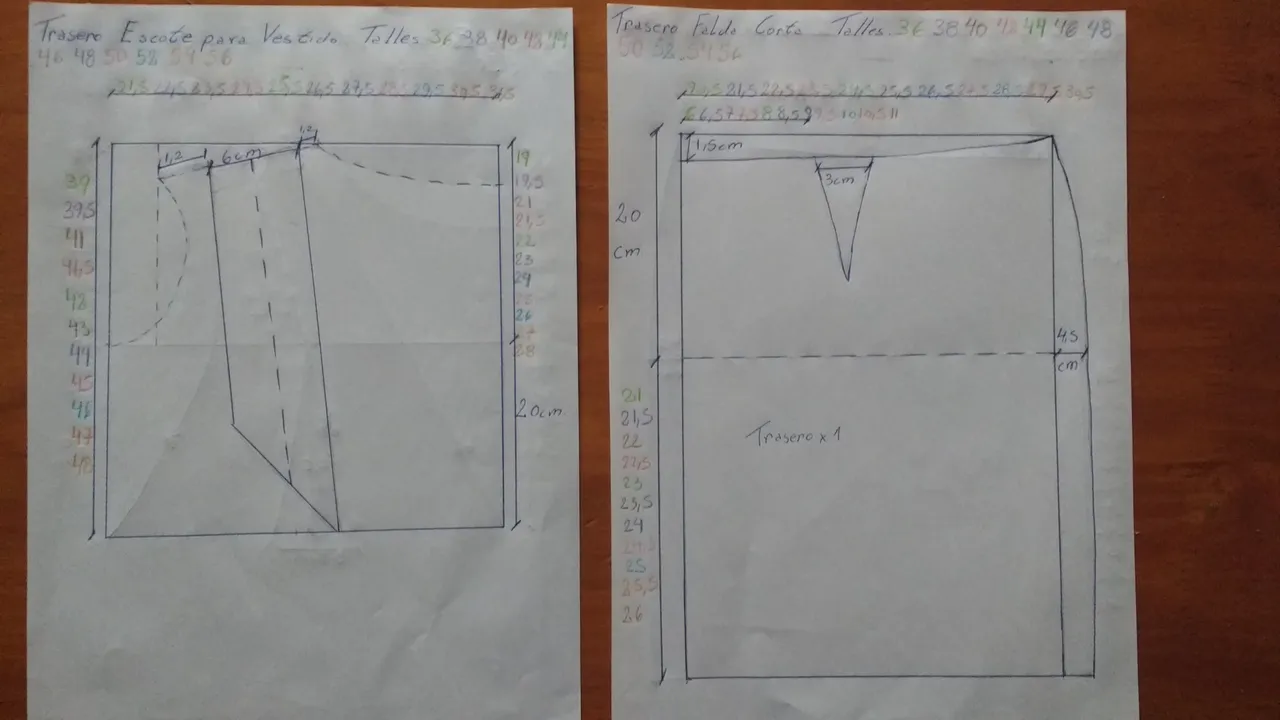 Trasero Escote para Vestido Talles 36 38 40 42 44
46 48 50 52 54 56
21,5 22,5 23,5 24,5 25,5 26,5 27,5 28,5 29,5 30,5 31,5
1,2
1,2
6cm
39
39,5
41
41,5
42
43
44
45
46
47
48
19
19,5
21
21,5
22
23
24
25
26
27
28
20cm
Trasero Falda Corta Talles 36 38 40 42 44 46 48
50 52 54 56
20,5 21,5 22,5 23,5 24,5 25,5 26,5 27,5 28,5 29,5 30,5
6 6,5 7 7,5 8 8,5 9 9,5 10 10,5 11
1,5cm
3cm
20
cm
4,5
cm
21
21,5
22
22,5
23
23,5
24
24,5
25
25,5
26
Trasero x 1